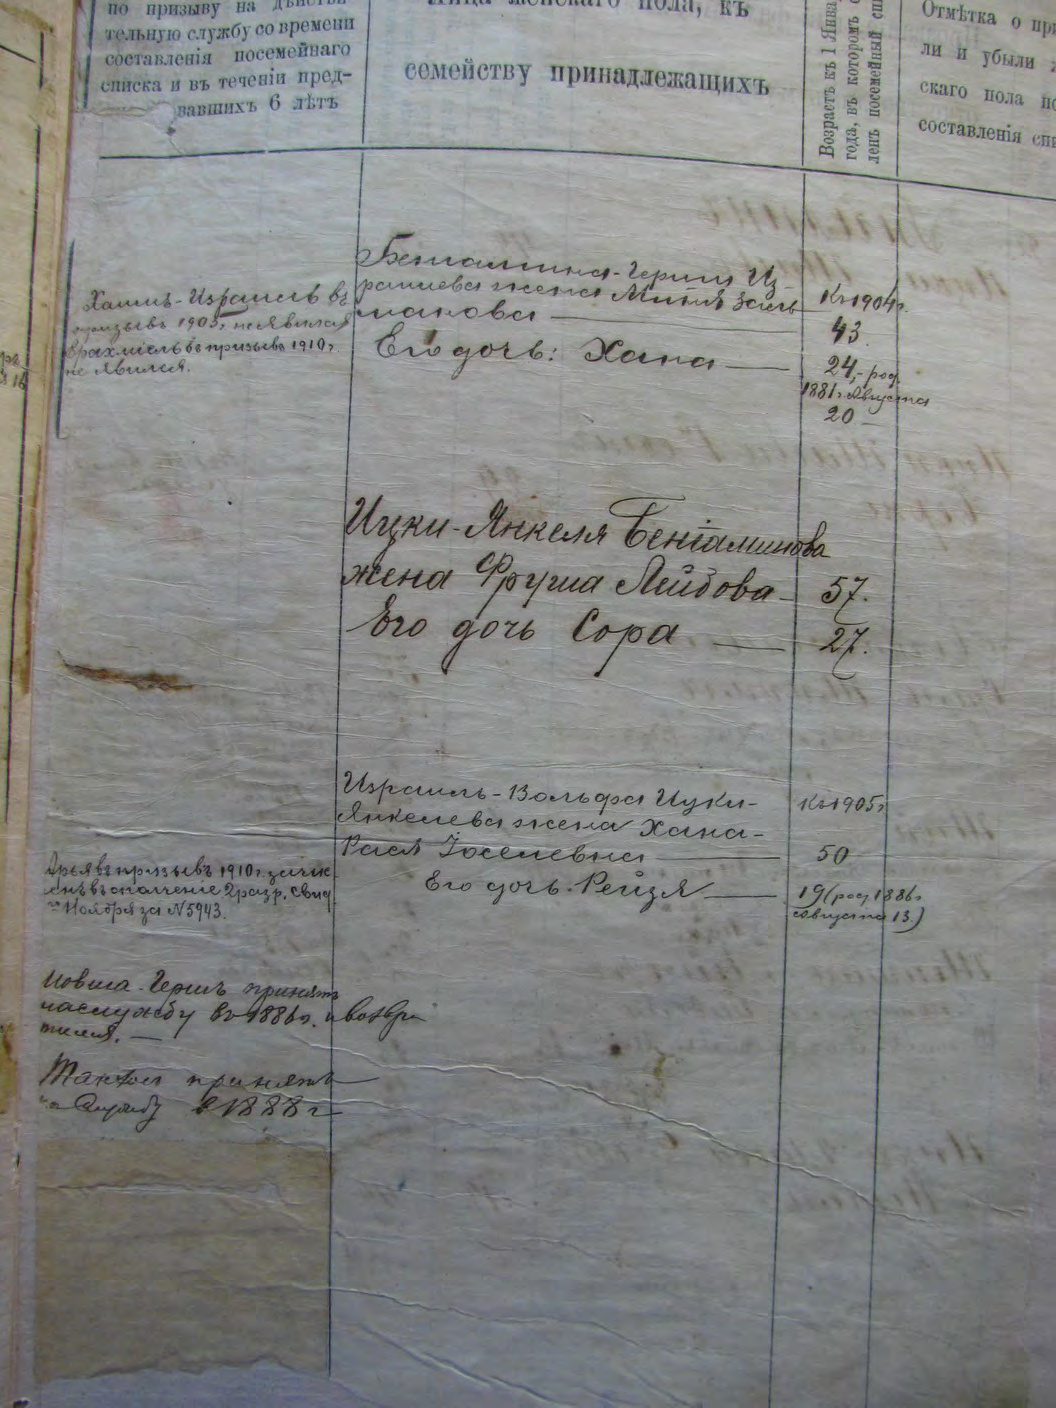 по призыву на
тельную службу со времени
составленія посемейнаго
списка и въ теченіи пред-
вавшихъ 6 лѣтъ
Лица женскаго пола, къ
семейству принадлежащихъ
Возрастъ къ 1 Янва
года, въ которомъ
ленъ посемейный спи
Отмѣтка о при
ли и убыли
скаго пола по
составленія спи
Хаимъ-Израиль въ
призывѣ 1903г. не явился
въ призывѣ 1910г.
не явился.
Беніамина-Герша Из-
раилева жена Митля Заль-
манова
Къ 1904г.
43.
Его дочь: Хана
24,- род.
1881г. Августа
20
Ицки-Янкеля Беніаминова
жена Фрума Лейбова 57.
Его дочь Сора 27.
Израиль-Вольфа Ицки-
Янкелева жена Хана-
Рася Іоселевна
Къ 1905г.
50
Его дочь. Рейзя
19 (род. 1886г.
августа 13.)
въ призывъ 1910г. зачис-
ленъ въ ополченіе 2 разр. свид.
Ноября за N 5943.
Мовша-Гершъ принятъ
на службу въ 1886г. и возвра
тился.
принятъ
на службу в 1888 г